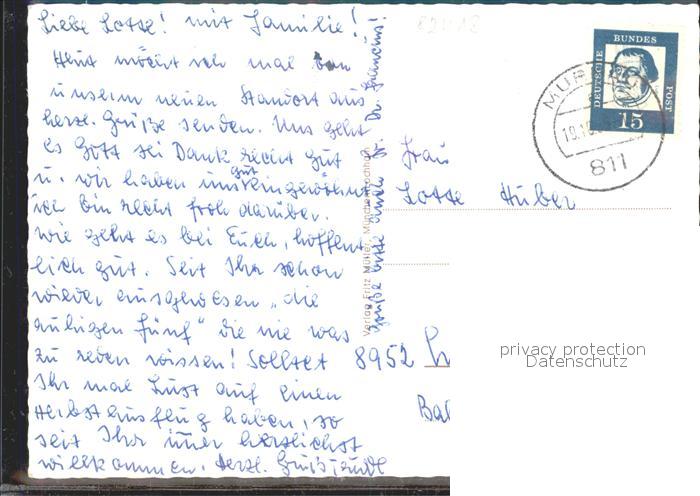 Liebe Lotte! mit Familie!
Heut möcht ich mal von
unserm neuen Standort aus
herzl. Grüße senden. Uns geht
es Gott sei Dank recht gut
u. wir haben uns gut eingewöhnt
ich bin recht froh darüber.
wie geht es bei Euch, hoffent
lich gut. Seit Ihr schon
wieder ausgewesen „die
ruhigen fünf" die nie was
zu reden wissen! Solltet
Ihr mal Lust auf einen
Herbstausflug haben, so
seit Ihr imer herzlichst
willkommen. Herzl. Grüß
Grüße bitte auch
Verlag Fritz Müller, München
82418
DEUTSCHE BUNDES POST
15
MURNAU
19.10.
811
Frau
Lotte Huber
8952
privacy protection
Datenschutz